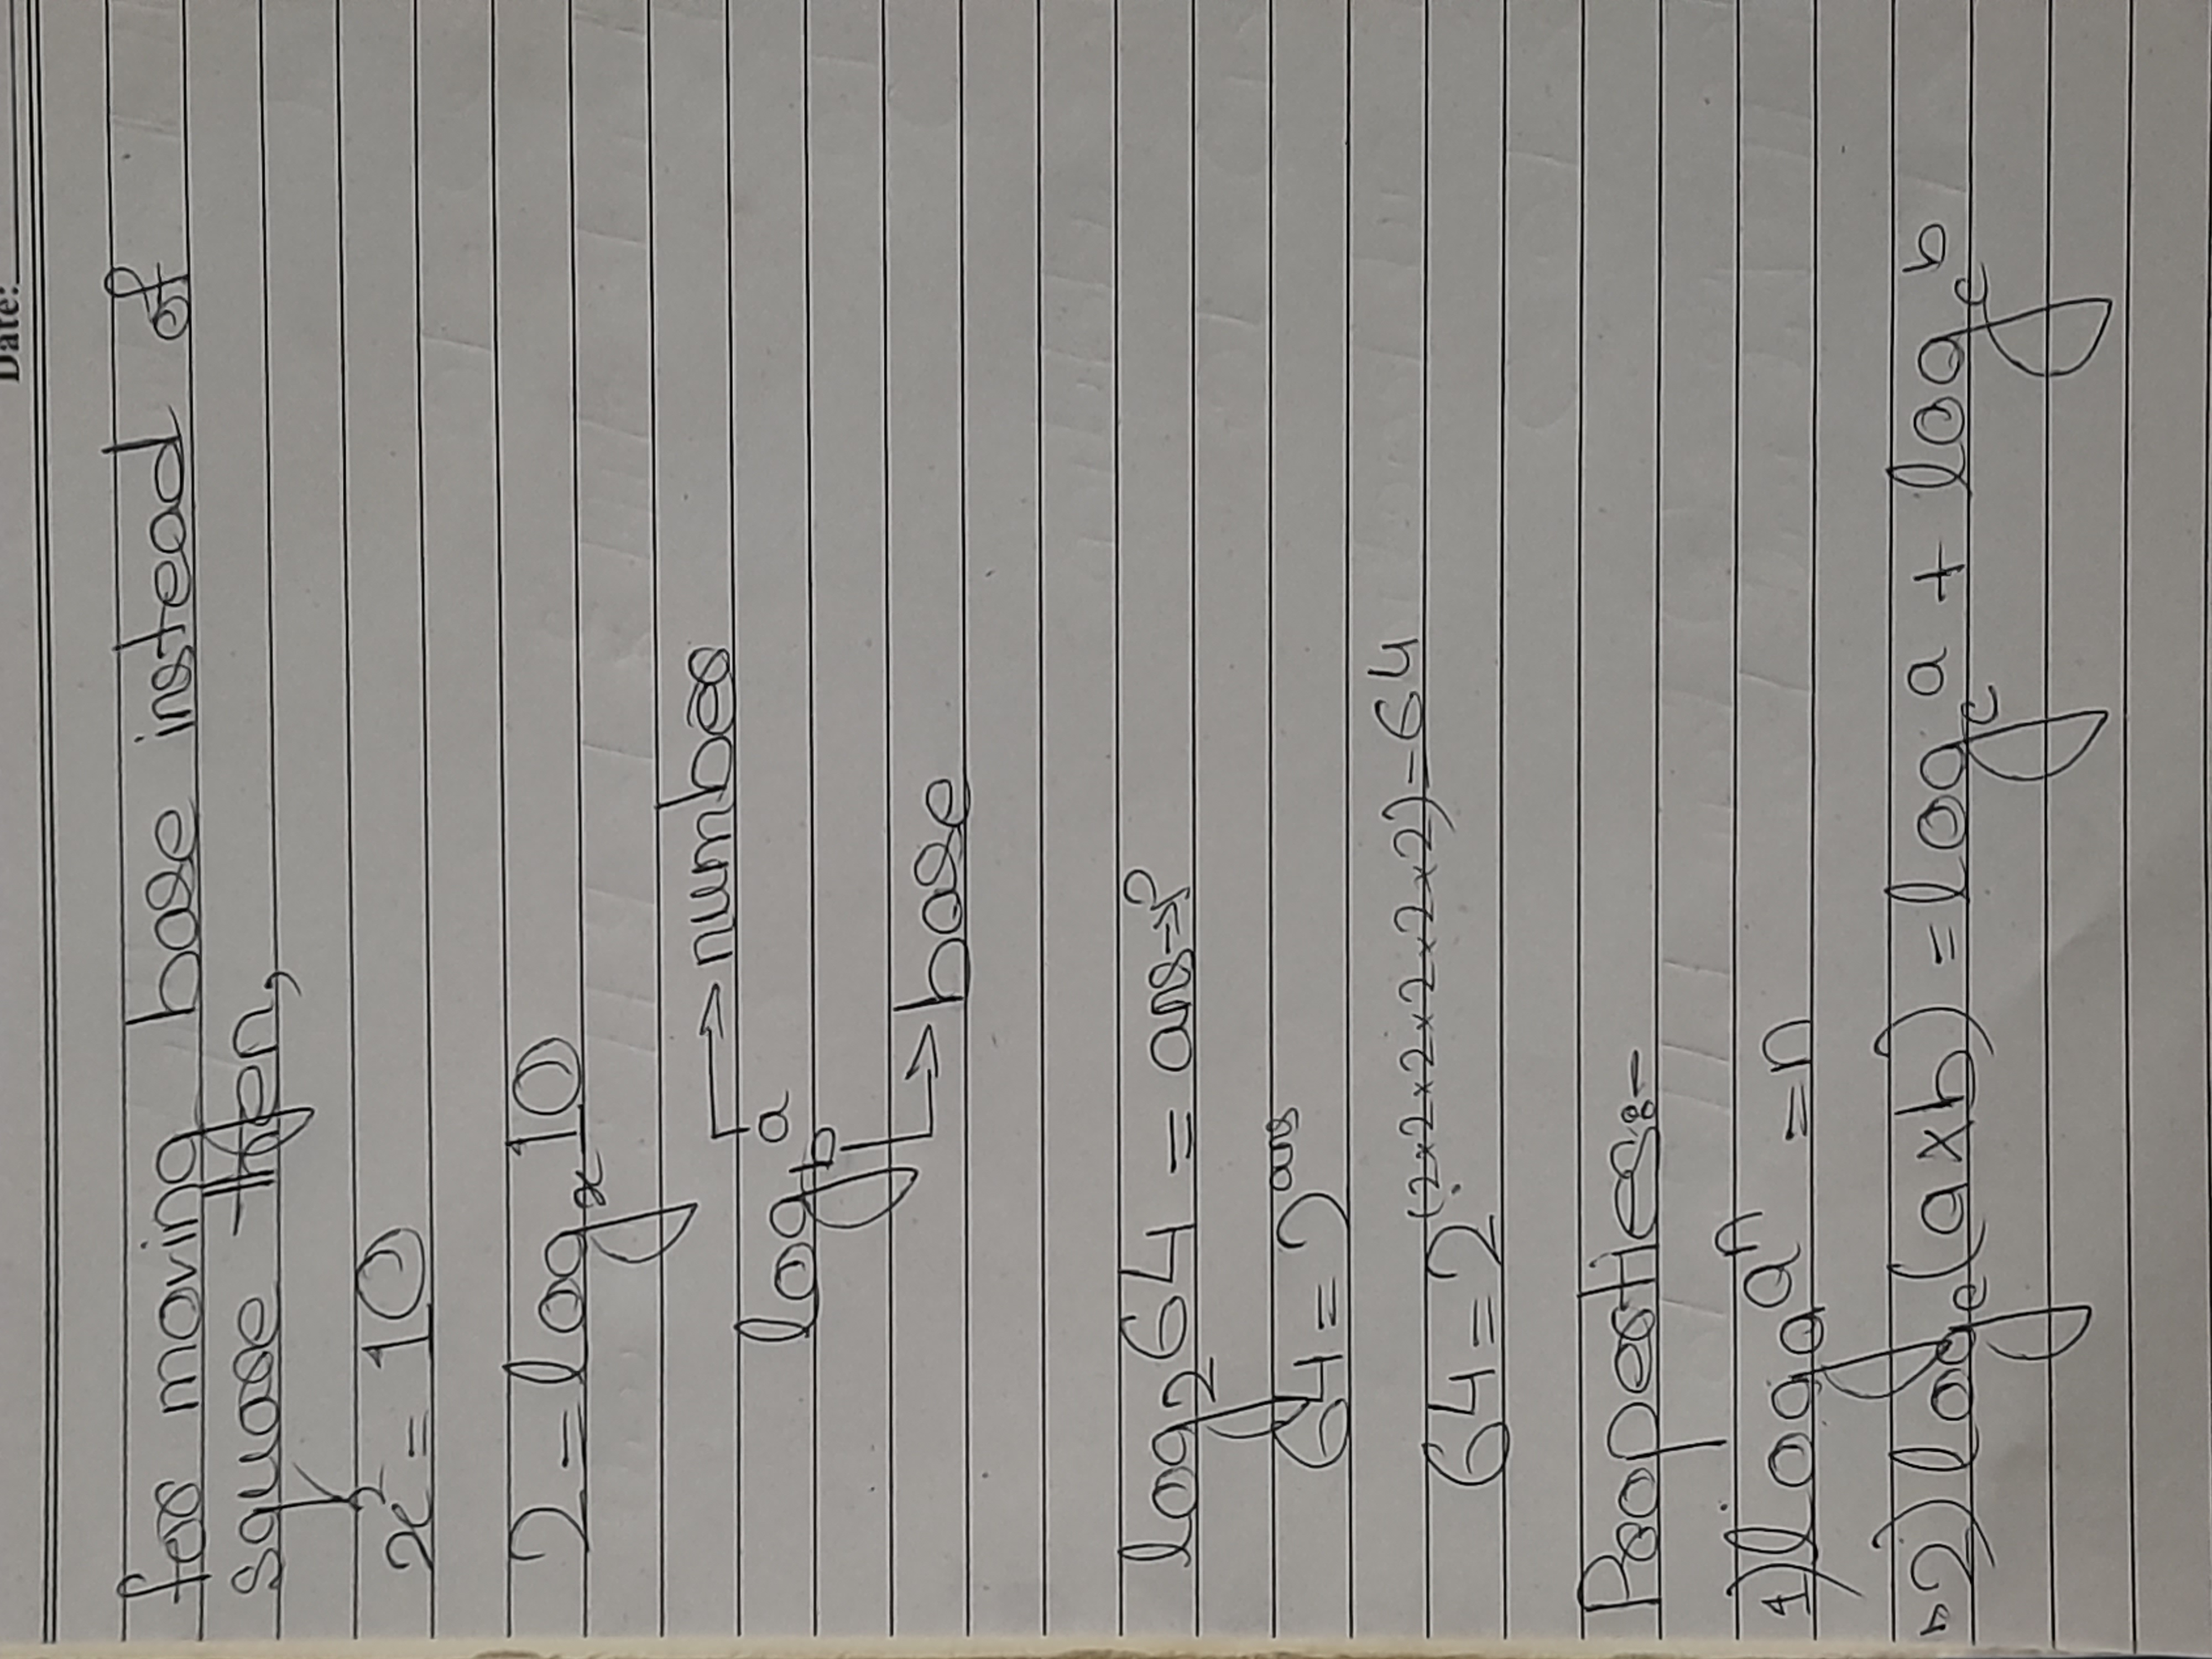 Date:
for moving base instead of
square then,
x² = 10
2 = logₓ10
number
log_b a
base
log₂64 = ans→?
64 = 2^ans
64 = 2^(2×2×2×2×2×2)=64
Properties:-
1) logₐaⁿ = n
2) log_c(a×b) = log_c a + log_c b